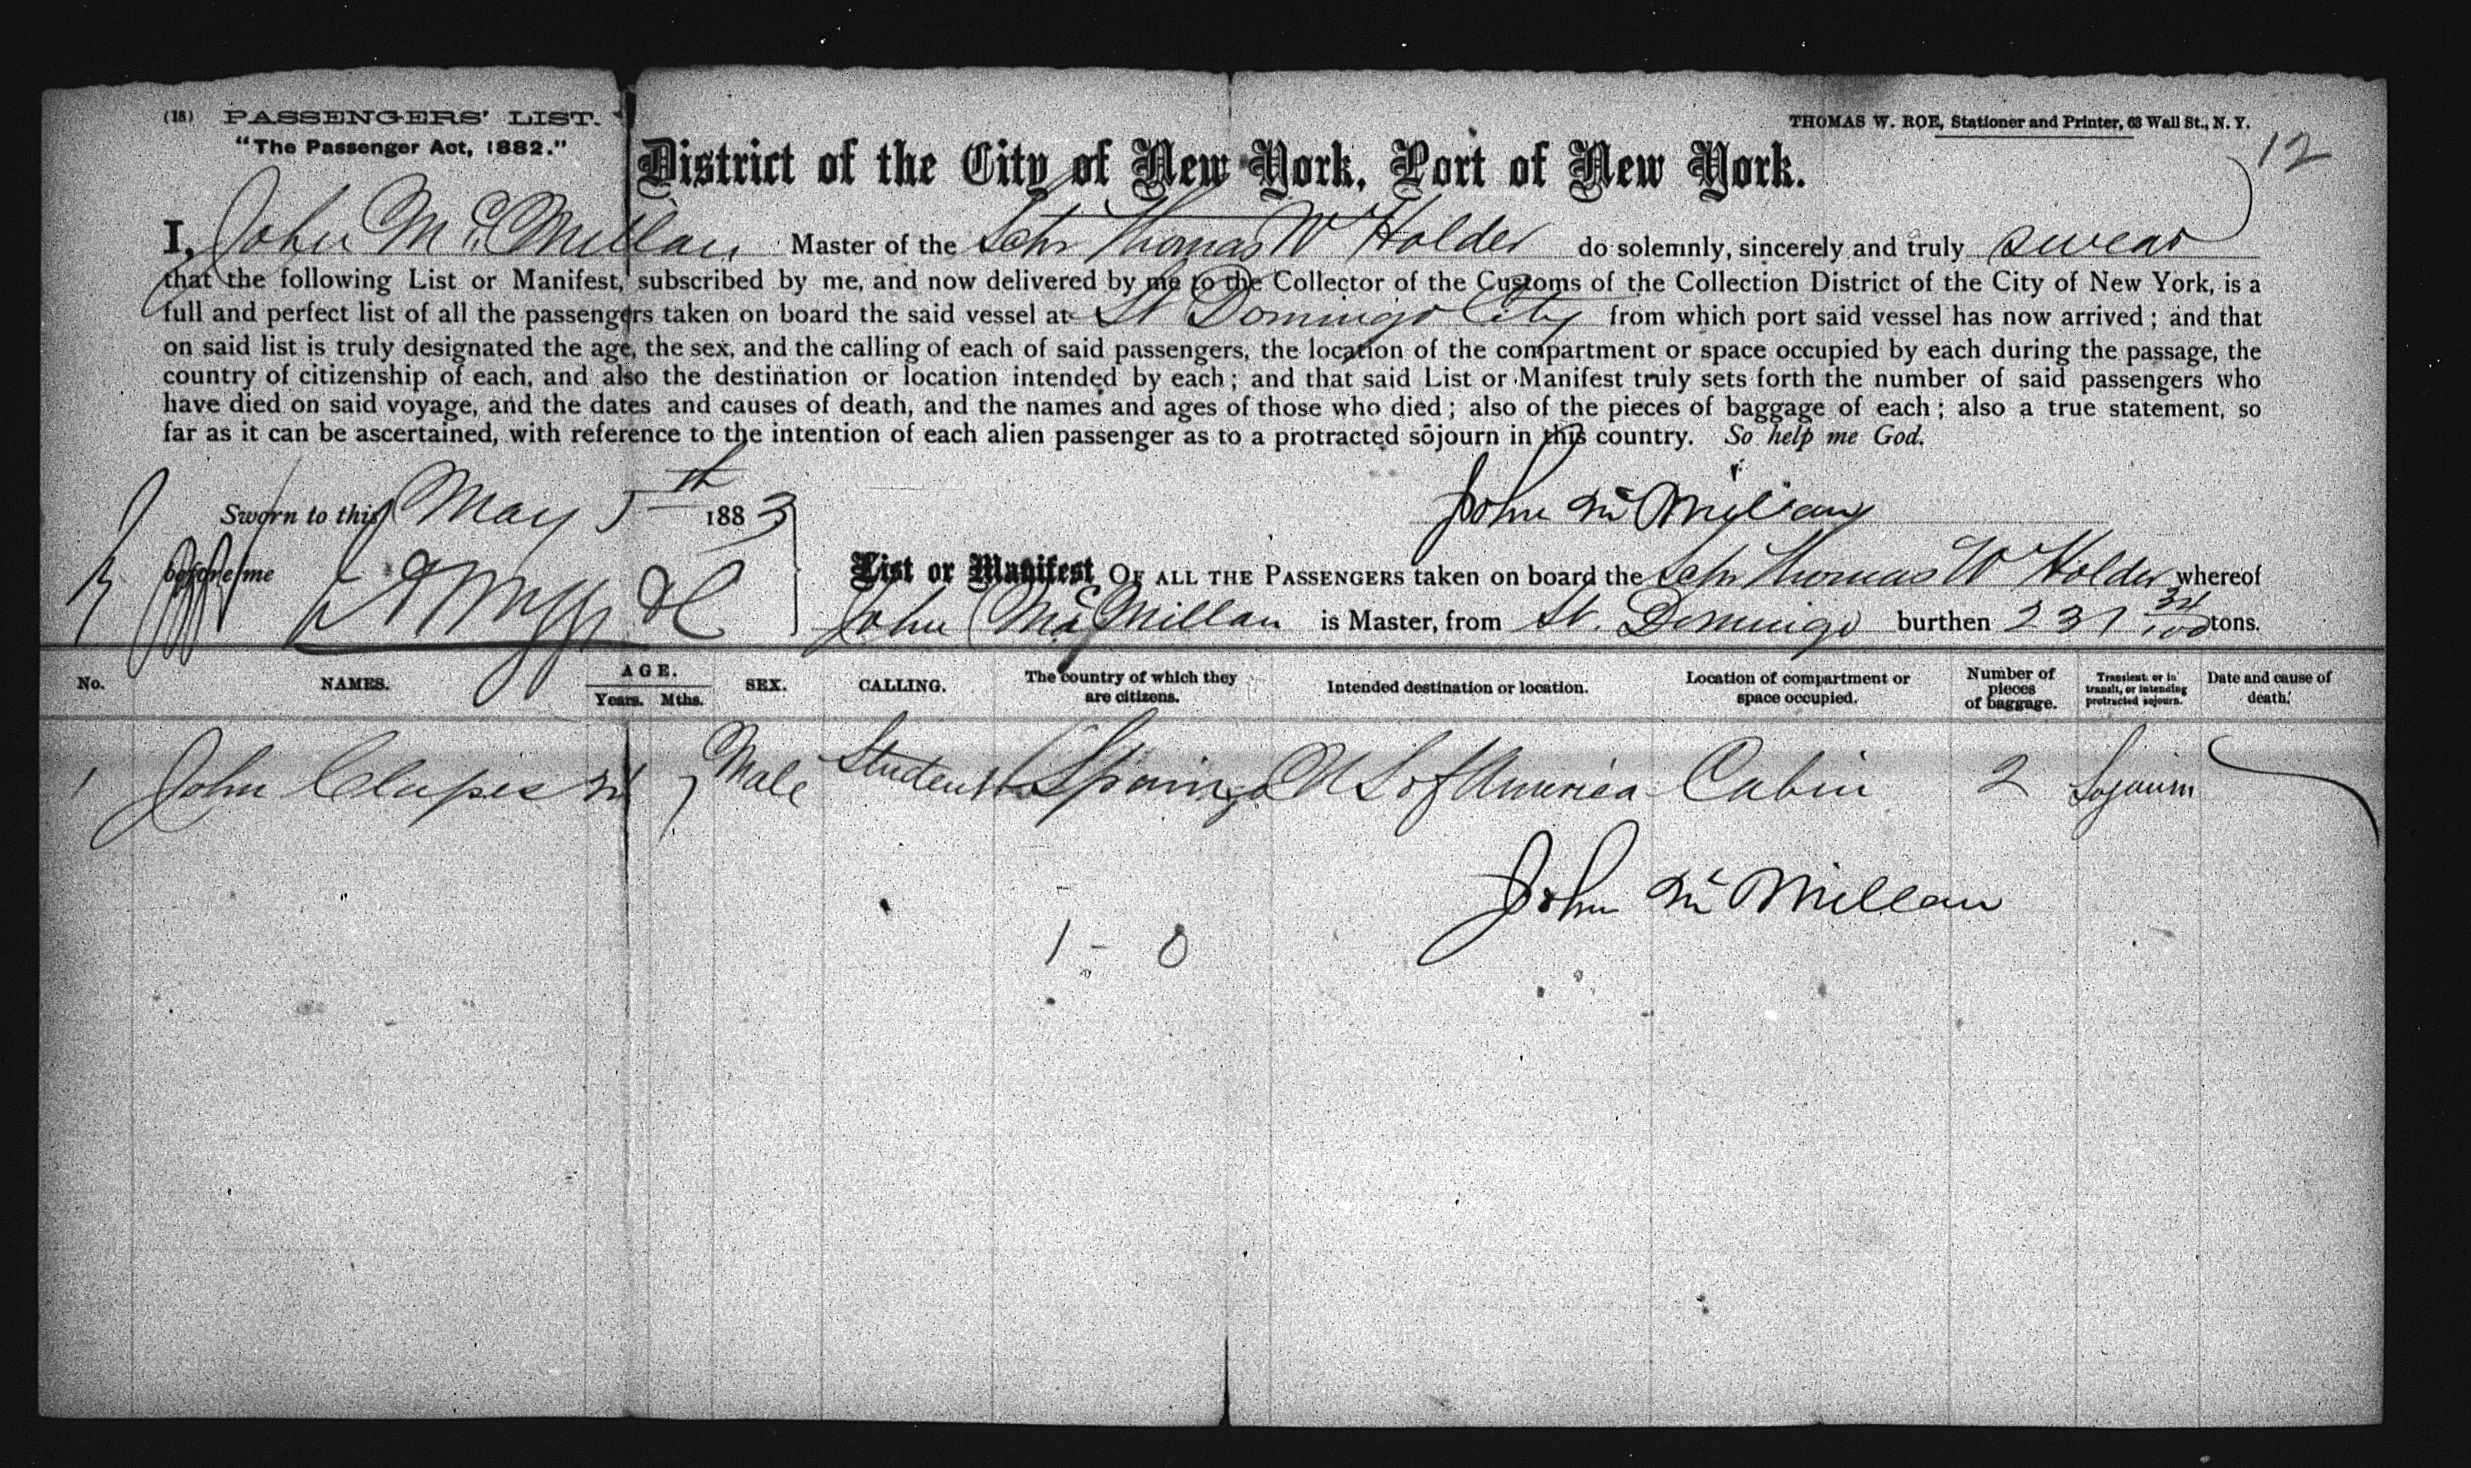 (18) PASSENGERS' LIST.
"The Passenger Act, 1882."
THOMAS W. ROE, Stationer and Printer, 63 Wall St., N. Y.
12
District of the City of New York, Port of New York.
I, John McMillan Master of the Schr Thomas W Holder do solemnly, sincerely and truly swear
that the following List or Manifest, subscribed by me, and now delivered by me to the Collector of the Customs of the Collection District of the City of New York, is a
full and perfect list of all the passengers taken on board the said vessel at St Domingo City from which port said vessel has now arrived; and that
on said list is truly designated the age, the sex, and the calling of each of said passengers, the location of the compartment or space occupied by each during the passage, the
country of citizenship of each, and also the destination or location intended by each; and that said List or Manifest truly sets forth the number of said passengers who
have died on said voyage, and the dates and causes of death, and the names and ages of those who died; also of the pieces of baggage of each; also a true statement, so
far as it can be ascertained, with reference to the intention of each alien passenger as to a protracted sojourn in this country. So help me God.
Sworn to this May 5th 1883
John McMillan
before me
List or Manifest OF ALL THE PASSENGERS taken on board the Schr Thomas W Holder whereof
John McMillan is Master, from St. Domingo burthen 231 /100 tons.
No. NAMES. AGE. Years. Mths. SEX. CALLING. The country of which they are citizens. Intended destination or location. Location of compartment or space occupied. Number of pieces of baggage. Transient or in transit, or intending protracted sojourn. Date and cause of death.
1 John Clapes Male Student Spain U S of America Cabin 2 Sojourn
John McMillan
1 - 0